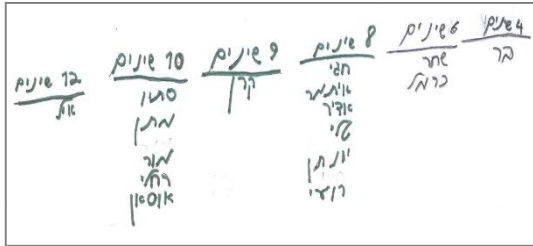 4 שינים
בר
6 שינים
שחר
כרמל
8 שינים
חגי
איתמר
אדיר
שלי
יונתן
רועי
9 שינים
קרן
10 שינים
מתן
מור
רחלי
12 שינים
איל